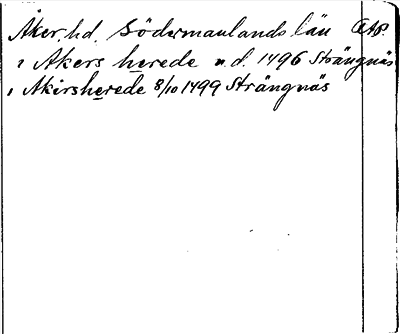 Åker. hd. Södermanlands län
ı Akers herede u.d. 1496 Strängnäs
ı Akirsherede 8/10 1499 Strängnäs